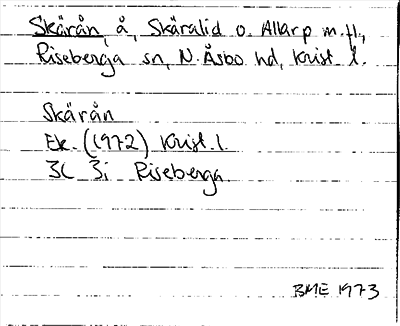 Skärån, å, Skäralid o. Allarp m.fl.,
Riseberga sn, N. Åsbo hd, Krist. l.
Skärån
Ek. (1972) Krist. l.
3C 3i Riseberga.
BME 1973